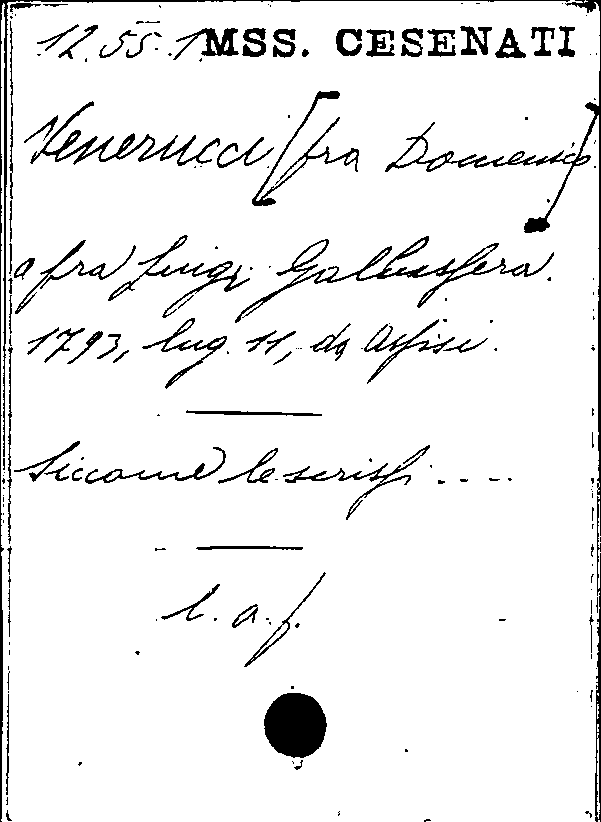 12.55.1 MSS. CESENATI
Venerucci [fra Domenico]
a fra Luigi Gallussera.
1793, lug. 11, da Assisi.
Siccome le scrissi....
l. a. f.